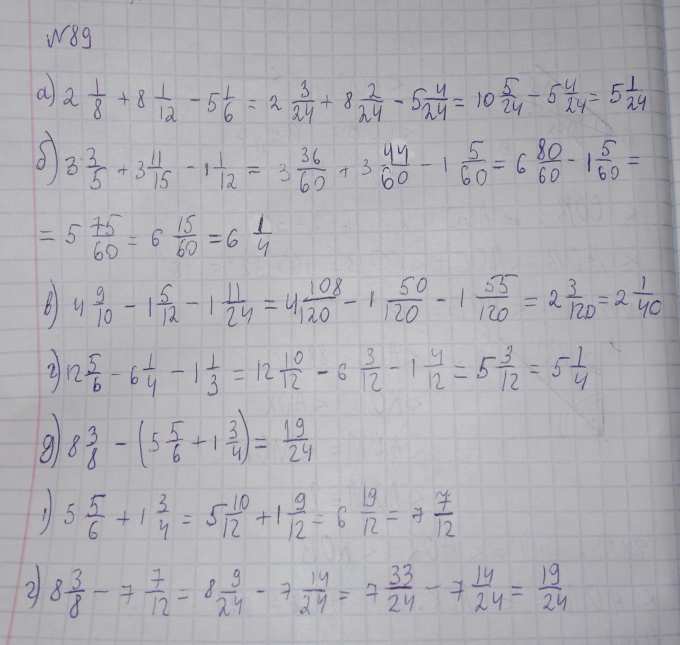 №89
а) 2 1/8 + 8 1/12 - 5 1/6 = 2 3/24 + 8 2/24 - 5 4/24 = 10 5/24 - 5 4/24 = 5 1/24
б) 3 3/5 + 3 11/15 - 1 1/12 = 3 36/60 + 3 44/60 - 1 5/60 = 6 80/60 - 1 5/60 =
= 5 75/60 = 6 15/60 = 6 1/4
в) 4 9/10 - 1 5/12 - 1 11/24 = 4 108/120 - 1 50/120 - 1 55/120 = 2 3/120 = 2 1/40
г) 12 5/6 - 6 1/4 - 1 1/3 = 12 10/12 - 6 3/12 - 1 4/12 = 5 3/12 = 5 1/4
д) 8 3/8 - (5 5/6 + 1 3/4) = 19/24
1) 5 5/6 + 1 3/4 = 5 10/12 + 1 9/12 = 6 19/12 = 7 7/12
2) 8 3/8 - 7 7/12 = 8 9/24 - 7 14/24 = 7 33/24 - 7 14/24 = 19/24